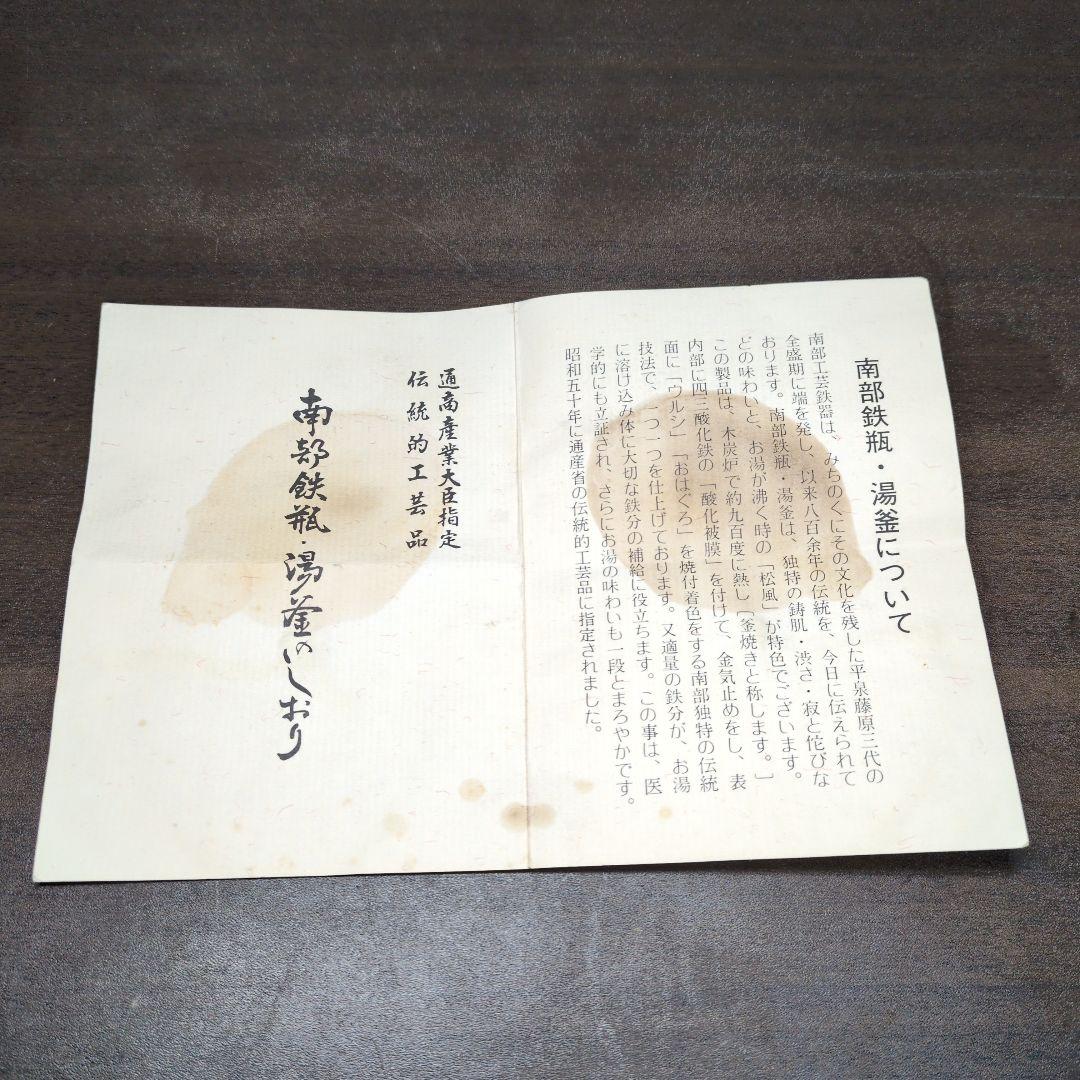 南部鉄瓶・湯釜について
南部工芸鉄器は、みちのくにその文化を残した平泉藤原三代の
全盛期に端を発し、以来八百余年の伝統を、今日に伝えられて
おります。南部鉄瓶・湯釜は、独特の鋳肌・渋さ・寂と侘びな
どの味わいと、お湯が沸く時の「松風」が特色でございます。
この製品は、木炭炉で約九百度に熱し〔釜焼きと称します。〕
内部に四三酸化鉄の「酸化被膜」を付けて、金気止めをし、表
面に「ウルシ」「おはぐろ」を焼付着色をする南部独特の伝統
技法で、一つ一つを仕上げております。又適量の鉄分が、お湯
に溶け込み体に大切な鉄分の補給に役立ちます。この事は、医
学的にも立証され、さらにお湯の味わいも一段とまろやかです。
昭和五十年に通産省の伝統的工芸品に指定されました。
通商産業大臣指定
伝統的工芸品
南部鉄瓶・湯釜のしおり